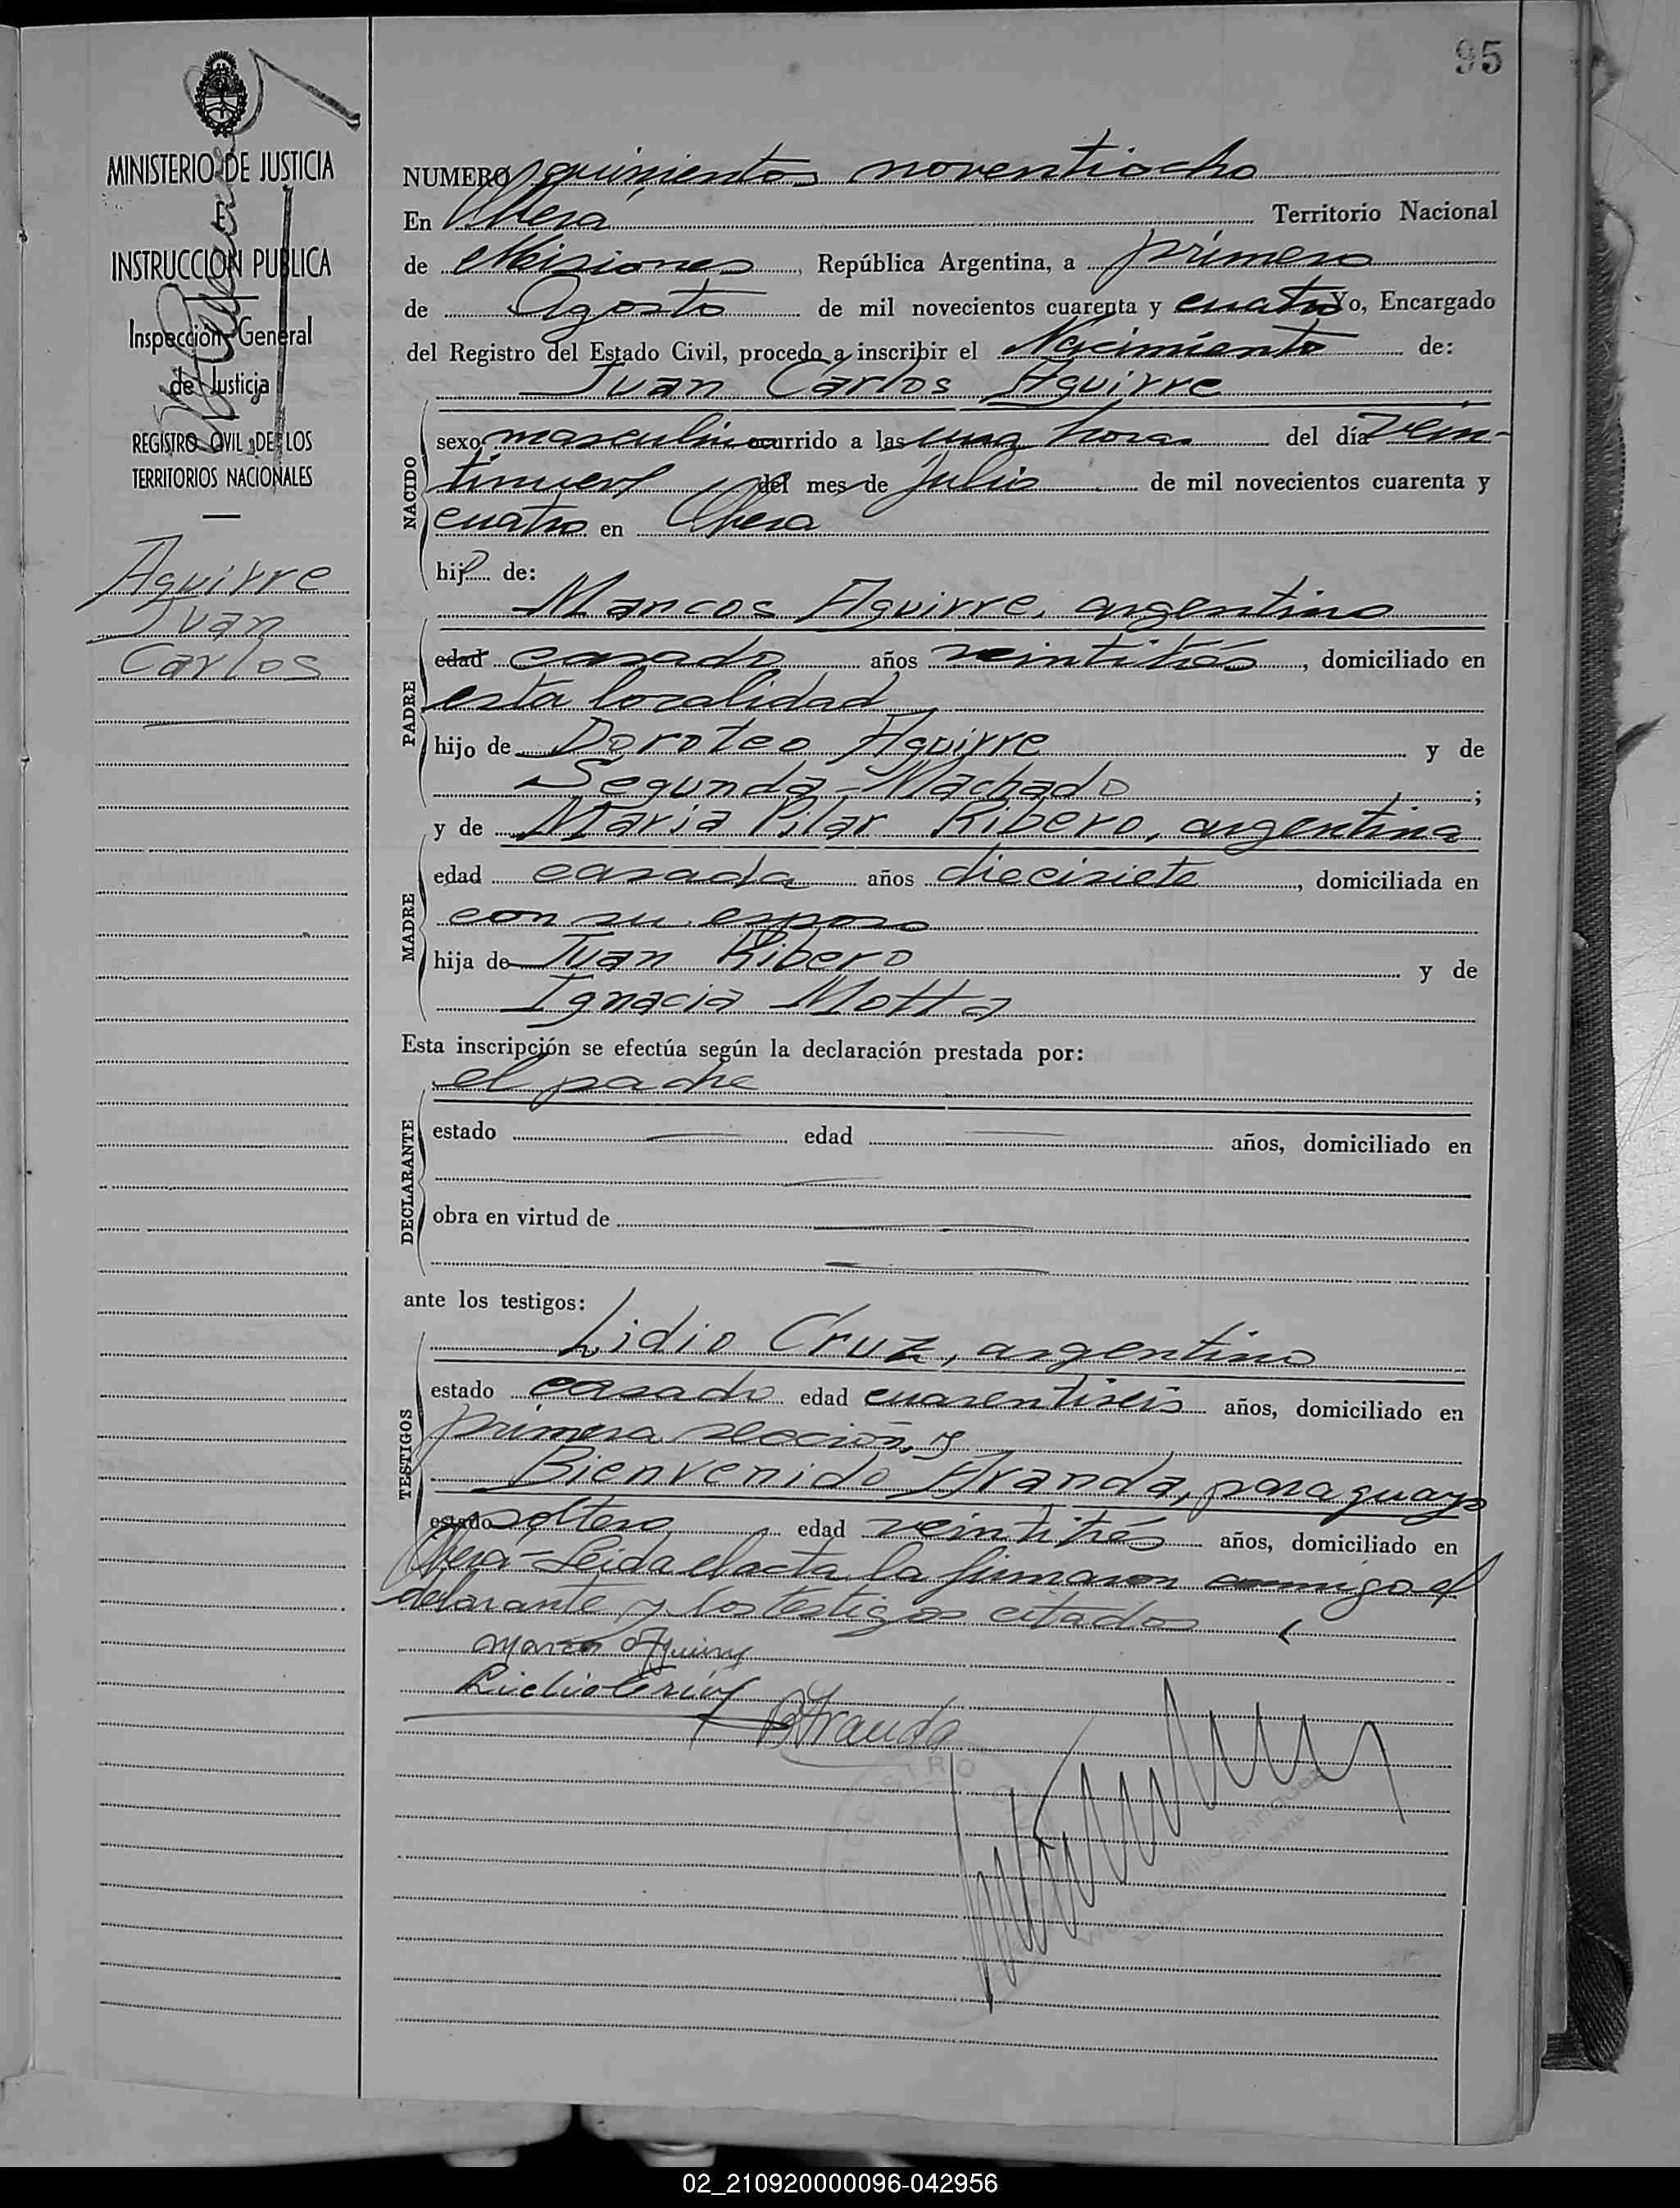 95
MINISTERIO DE JUSTICIA
E
INSTRUCCION PUBLICA
Inspección General
de Justicia
REGISTRO CIVIL DE LOS
TERRITORIOS NACIONALES
Aguirre
Juan
Carlos
NUMERO quinientos noventiocho
En Obera Territorio Nacional
de Misiones, República Argentina, a primero
de Agosto de mil novecientos cuarenta y cuatro Yo, Encargado
del Registro del Estado Civil, procedo a inscribir el Nacimiento de:
Juan Carlos Aguirre
NACIDO
sexo masculino ocurrido a las una horas del día vein-
tinueve del mes de Julio de mil novecientos cuarenta y
cuatro en Obera
hijo de:
Marcos Aguirre, argentino
PADRE
edad casado años veintitrés, domiciliado en
esta localidad
hijo de Doroteo Aguirre y de
Segunda Machado ;
y de Maria Pilar Ribero, argentina
MADRE
edad casada años diecisiete, domiciliada en
con su esposo
hija de Juan Ribero y de
Ignacia Motta
Esta inscripción se efectúa según la declaración prestada por:
el padre
DECLARANTE
estado edad años, domiciliado en
obra en virtud de
ante los testigos:
Lidio Cruz, argentino
TESTIGOS
estado casado edad cuarentiseis años, domiciliado en
primera sección, y
Bienvenido Aranda, paraguayo
estado soltero edad veintitrés años, domiciliado en
Oberá - Leida el acta la firmaron conmigo el
delarante y los testigos citados
Marcos Aguirre
Lidio Cruz
B Aranda
02_210920000096-042956